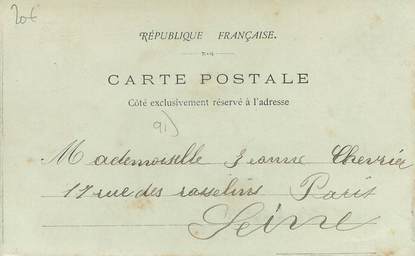 20€
RÉPUBLIQUE FRANÇAISE.
CARTE POSTALE
Côté exclusivement réservé à l'adresse
91)
Mademoiselle Jeanne Chevrier
17 rue des rasselins Paris
Seine